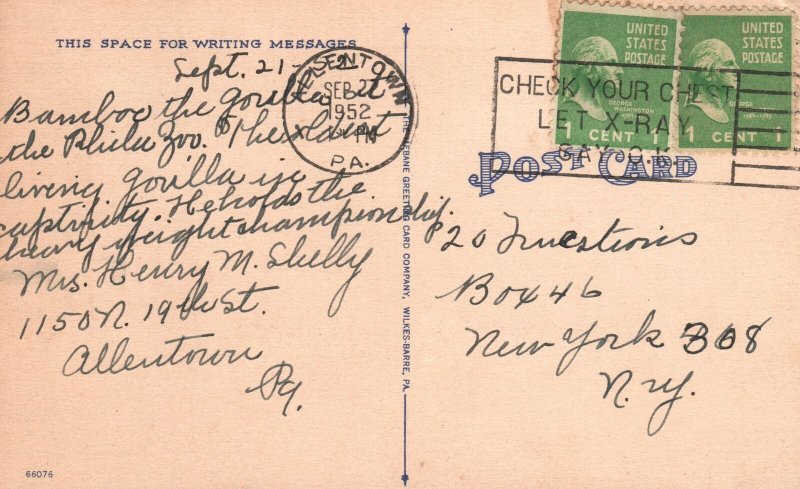 THIS SPACE FOR WRITING MESSAGES
Sept. 21 - 52
Bamboo the gorilla at
the Phila Zoo. The oldest
living gorilla in
captivity. He holds the
heavy weight championship.
Mrs. Henry M. Shelly
1150 N. 19th St.
Allentown
Pa.
66076
ALLENTOWN
SEP 22
1952
PM
PA.
THE MEBANE GREETING CARD COMPANY, WILKES-BARRE, PA.
UNITED
STATES
POSTAGE
GEORGE
WASHINGTON
1 CENT 1
UNITED
STATES
POSTAGE
GEORGE
WASHINGTON
1 CENT 1
CHECK YOUR CHEST
LET X-RAY
SAY O.K.
POST CARD
20 Questions
Box 46
New York 308
N.Y.